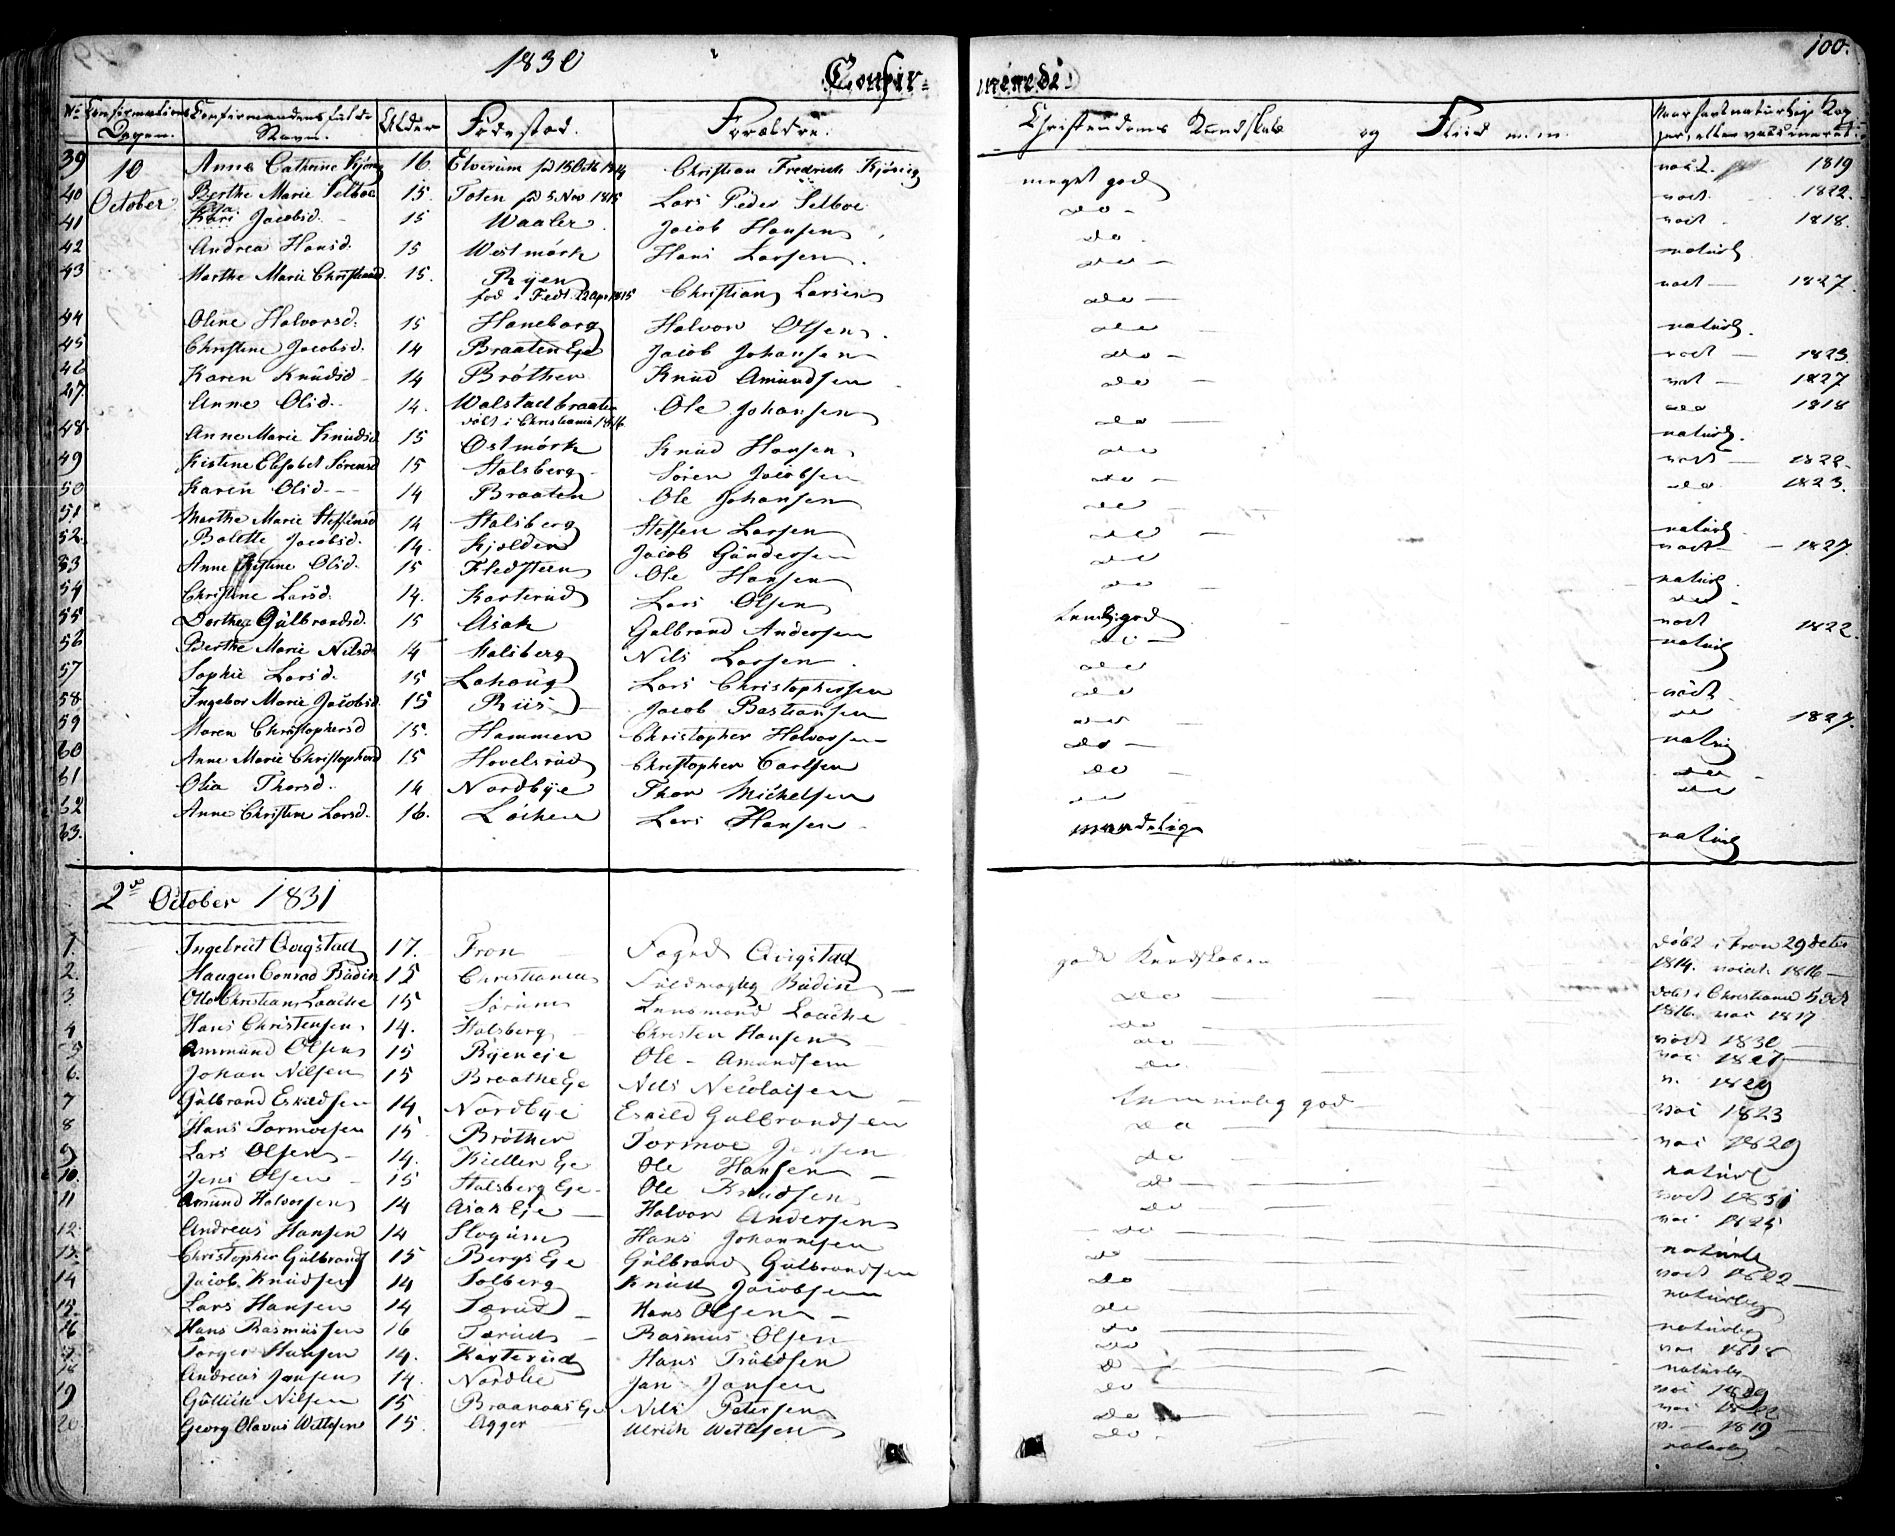 1830
Confir-
merede.
100.
No Confirmations Dagen. Confirmandens fulde Navn. Alder Fødestad. Forældre. Christendoms Kundskab og Fliid m. m. Naar havt naturlig Kopper, eller vaccineret.
39 10 Anne Cathrine 16. Elverum Christian Fredrich meget god vac. 1819
40 October Berthe Marie Selboe 15. Toten fød 5 Nov 1815 Lars Peder Selboe do - vact. 1822.
41 Kari Jacobsd. - 15 Waaler Jacob Hansen do . vact. 1818.
42 Andrea Hansd. 15 Westmörk Hans Larsen. do - naturl.
43 Marthe Marie Christiansd. 15. Ryen Christian Larsen do - vact - 1827.
fød i Fedt. 22 apr 1815
44 Oline Halvorsd. 15 Haneborg Halvor Olsen. do - naturl.
45 Christine Jacobsd. 14 Braaten Eje Jacob Johansen do - vact - 1823.
46 Karen Knudsd - 14 Bröther Knud Amundsen do - vact - 1827
47. Anne Olsd. - 14. Walstadbraaten Ole Johansen do - do 1818
döbt i Christiania 1816
48. Anne Marie Knudsd 15 Ostmörk Knud Hansen do naturl.
49 Kistine Elisabet Sörensd 15 Stalsberg - Sören Jacobsen do - vact - 1822.
50 Karen Olsd. - - 14 Braaten Ole Johansen do - do 1823.
51 Marthe Marie Steffensd 14 Stalsberg Steffen Larsen do - naturl.
52. Bolette Jacobsd. 14. Kjølden Jacob Gundersen do vact - 1827.
53 Anne Kistine Olsd. 15 Fledsteen Ole Hansen do naturl.
54 Christine Larsd. 14. Karterud Lars Olsen do -
55 Dorthea Gulbrandsd. 15 Asak Gulbrand Andersen temlig god vact 1822.
56 Berthe Marie Nilsd 14 Stalsberg Nils Larsen . do - naturl
57 Sophie Larsd. 15 Lahaug Lars Christophersen do vact.
58 Ingebor Marie Jacobsd. 15 Riis Jacob Bastiansen do do 1827.
59 Maren Christophersd 15. Hammer Christopher Halvorsen do - naturl
60 Anne Marie Christophersd 15 Hovelsrud Christopher Carlsen do - do -
61 Olia Thorsd. 14 Nordbÿe Thor Michelsen do do
62 Anne Christine Larsd. 16. Löchen Lars Hansen - maadelig naturl
63.
2den October 1831
1. Ingebret Qvigstad 17. Fron Foged Qvigstad gode Kundskaber döbt i Fron 29
1814. vaccii. 1816 -
2. Haagen Conrad Budin 15 Christiania Fuldmægtig Budin - do - döbt i Christiania 5
1816. vac 1817
3 Otto Christian Laache 15 Sörum Lensmand Laache do -
4. Hans Christensen 14. Stalsberg - Christen Hansen do - vact 1830
5 Ammund Olsen 15 Ryeneje Ole - Amundsen do. vac 1827
6. Johan Nilsen 15 Braathe Eje Nils Nicolaisen - v. 1829
7 Gulbrand Eskildsen 14 Nordbÿe Eskild Gulbrandsen temmelig god vac 1823
8 Hans Tormoesen 15 Bröther Tormoe Jensen do - vac 1829
9 Lars Olsen - 14. Kieller Eje Ole Hansen - do - naturl
10. Jens Olsen - 15 Stalsberg Eje - Ole Knudsen do - vact 1831
11 Amund Halvorsen 14 Asak Eje - Halvor Andersen do - vac 1825
12. Andreas Hansen 14 Slogum Hans Johannesen do - naturl
13. Christopher Gulbrands 15 Bergs Eje Gulbrand Gulbrandsen do - vact 1822 -
14 Jacob Knudsen 14 Solberg Knud Jacobsen do - naturlig
15. Lars Hansen 14 Tærud - Hans Olsen - do - naturlig
16 Hans Rasmussen 16 Tærud - Rasmus Olsen do -
17. Torger Hansen 14. Karterud Hans do - vac 1818
18 Andreas Jansen 14. Nordlie Jan Jansen do naturlig
19 Gullick Nilsen 15 Braanaas Eje Nils Petersen do -
20. Georg Olavus Wittesen 15. Agger Ulrich Wettesen do - v. - 1819 -
naturlig -